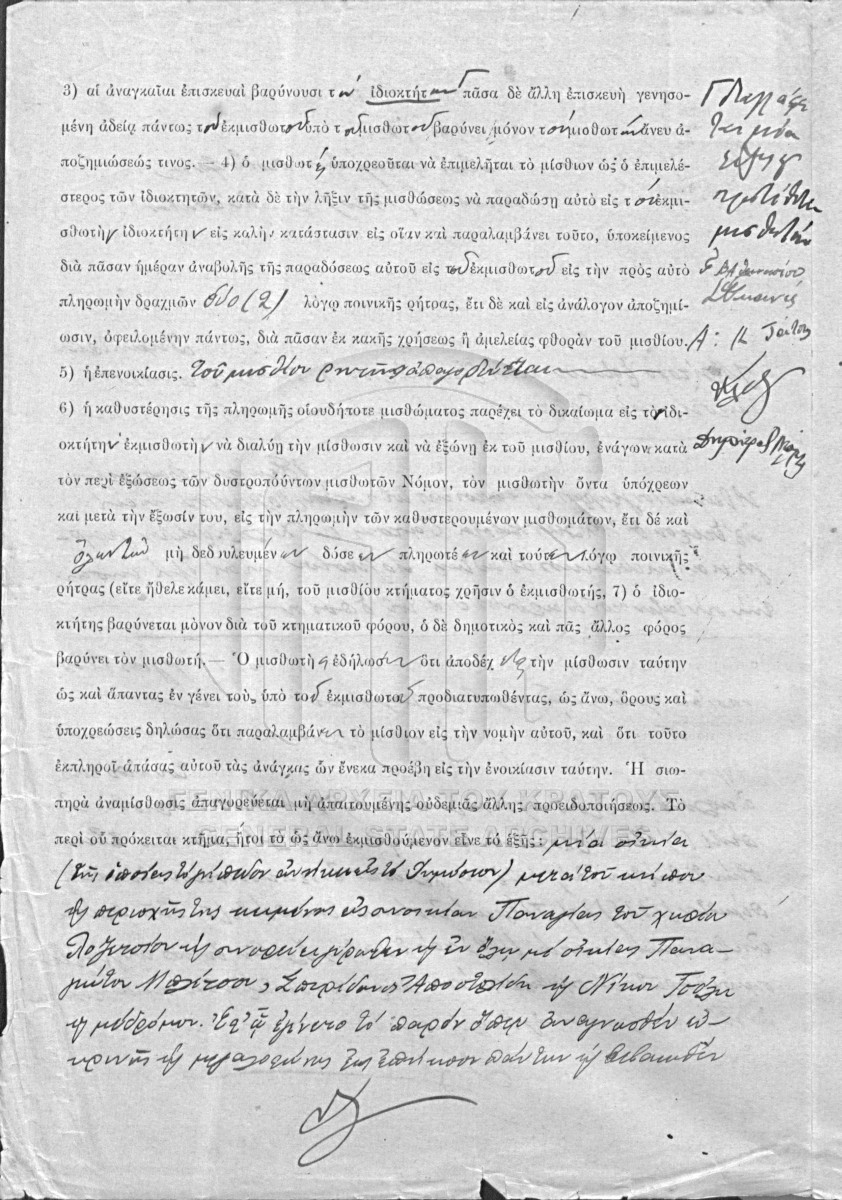 3) αἱ ἀναγκαῖαι ἐπισκευαὶ βαρύνουσι τὸν ἰδιοκτήτην πᾶσα δὲ ἄλλη ἐπισκευὴ γενησο-
μένη ἀδείᾳ πάντως τοῦ ἐκμισθωτοῦ ὑπὸ τοῦ μισθωτοῦ βαρύνει μόνον τὸν μισθωτὴν ἄνευ ἀ-
ποζημιώσεώς τινος. — 4) ὁ μισθωτὴς ὑποχρεοῦται νὰ ἐπιμελῆται τὸ μίσθιον ὡς ὁ ἐπιμελέ-
στερος τῶν ἰδιοκτητῶν, κατὰ δὲ τὴν λῆξιν τῆς μισθώσεως νὰ παραδώσῃ αὐτὸ εἰς τὸν ἐκμι-
σθωτὴν ἰδιοκτήτην εἰς καλὴν κατάστασιν εἰς οἵαν καὶ παραλαμβάνει τοῦτο, ὑποκείμενος
διὰ πᾶσαν ἡμέραν ἀναβολῆς τῆς παραδόσεως αὐτοῦ εἰς τὸν ἐκμισθωτοῦ εἰς τὴν πρὸς αὐτὸ
πληρωμὴν δραχμῶν δύο (2) λόγῳ ποινικῆς ρήτρας, ἔτι δὲ καὶ εἰς ἀνάλογον ἀποζημί-
ωσιν, ὀφειλομένην πάντως, διὰ πᾶσαν ἐκ κακῆς χρήσεως ἢ ἀμελείας φθορὰν τοῦ μισθίου.
5) ἡ ἐπενοικίασις. τοῦ μισθίου ρητῶς ἀπαγορεύεται
6) ἡ καθυστέρησις τῆς πληρωμῆς οἱουδήποτε μισθώματος παρέχει τὸ δικαίωμα εἰς τὸν ἰδι-
οκτήτην ἐκμισθωτὴν νὰ διαλύῃ τὴν μίσθωσιν καὶ νὰ ἐξώνῃ ἐκ τοῦ μισθίου, ἐνάγων κατὰ
τὸν περὶ ἐξώσεως τῶν δυστροπούντων μισθωτῶν Νόμον, τὸν μισθωτὴν ὄντα ὑπόχρεων
καὶ μετὰ τὴν ἔξωσίν του, εἰς τὴν πληρωμὴν τῶν καθυστερουμένων μισθωμάτων, ἔτι δέ καὶ
μὴ δεδουλευμένων δόσεων πληρωτέων καὶ τούτων λόγῳ ποινικῆς
ρήτρας (εἴτε ἤθελε κάμει, εἴτε μή, τοῦ μισθίου κτήματος χρῆσιν ὁ ἐκμισθωτής, 7) ὁ ἰδιο-
κτήτης βαρύνεται μόνον διὰ τοῦ κτηματικοῦ φόρου, ὁ δὲ δημοτικὸς καὶ πᾶς ἄλλος φόρος
βαρύνει τὸν μισθωτή. — Ὁ μισθωτὴς ἐδήλωσεν ὅτι ἀποδέχεται τὴν μίσθωσιν ταύτην
ὡς καὶ ἅπαντας ἐν γένει τοὺς ὑπὸ τοῦ ἐκμισθωτοῦ προδιατυπωθέντας, ὡς ἄνω, ὅρους καὶ
ὑποχρεώσεις δηλώσας ὅτι παραλαμβάνει τὸ μίσθιον εἰς τὴν νομὴν αὐτοῦ, καὶ ὅτι τοῦτο
ἐκπληροῖ ἁπάσας αὐτοῦ τὰς ἀνάγκας ὧν ἕνεκα προέβη εἰς τὴν ἐνοικίασιν ταύτην. Ἡ σιω-
πηρὰ ἀναμίσθωσις ἀπαγορεύεται μὴ ἀπαιτουμένης οὐδεμιᾶς ἄλλης προειδοποιήσεως. Τὸ
περὶ οὗ πρόκειται κτῆμα, ἤτοι τὸ ὡς ἄνω ἐκμισθούμενον εἶνε τὸ ἑξῆς: μία οἰκία
(τῆς ὁποίας τὸ γήπεδον ἀνήκει εἰς τὸ Δημόσιον) μετὰ τοῦ κήπου
τῆς περιοχῆς της κειμένης εἰς συνοικίαν Παναγίας τοῦ χωρίου
συνορευομένη
Σπυρίδωνος Ἀποστολίδη καὶ Νίκου
καὶ μὲ δρόμον. Ἐφ' ᾧ ἐγένετο τὸ παρὸν ὅπερ ἀναγνωσθὲν εὐ-
κρινῶς καὶ μεγαλοφώνως εἰς ἐπήκοον πάντων καὶ βεβαιωθὲν
Διαγράφε
ται μία
λέξις
προστίθεται
μισθωτὴν
ΓΕΝΙΚΑ ΑΡΧΕΙΑ ΤΟΥ ΚΡΑΤΟΥΣ
GENERAL STATE ARCHIVES